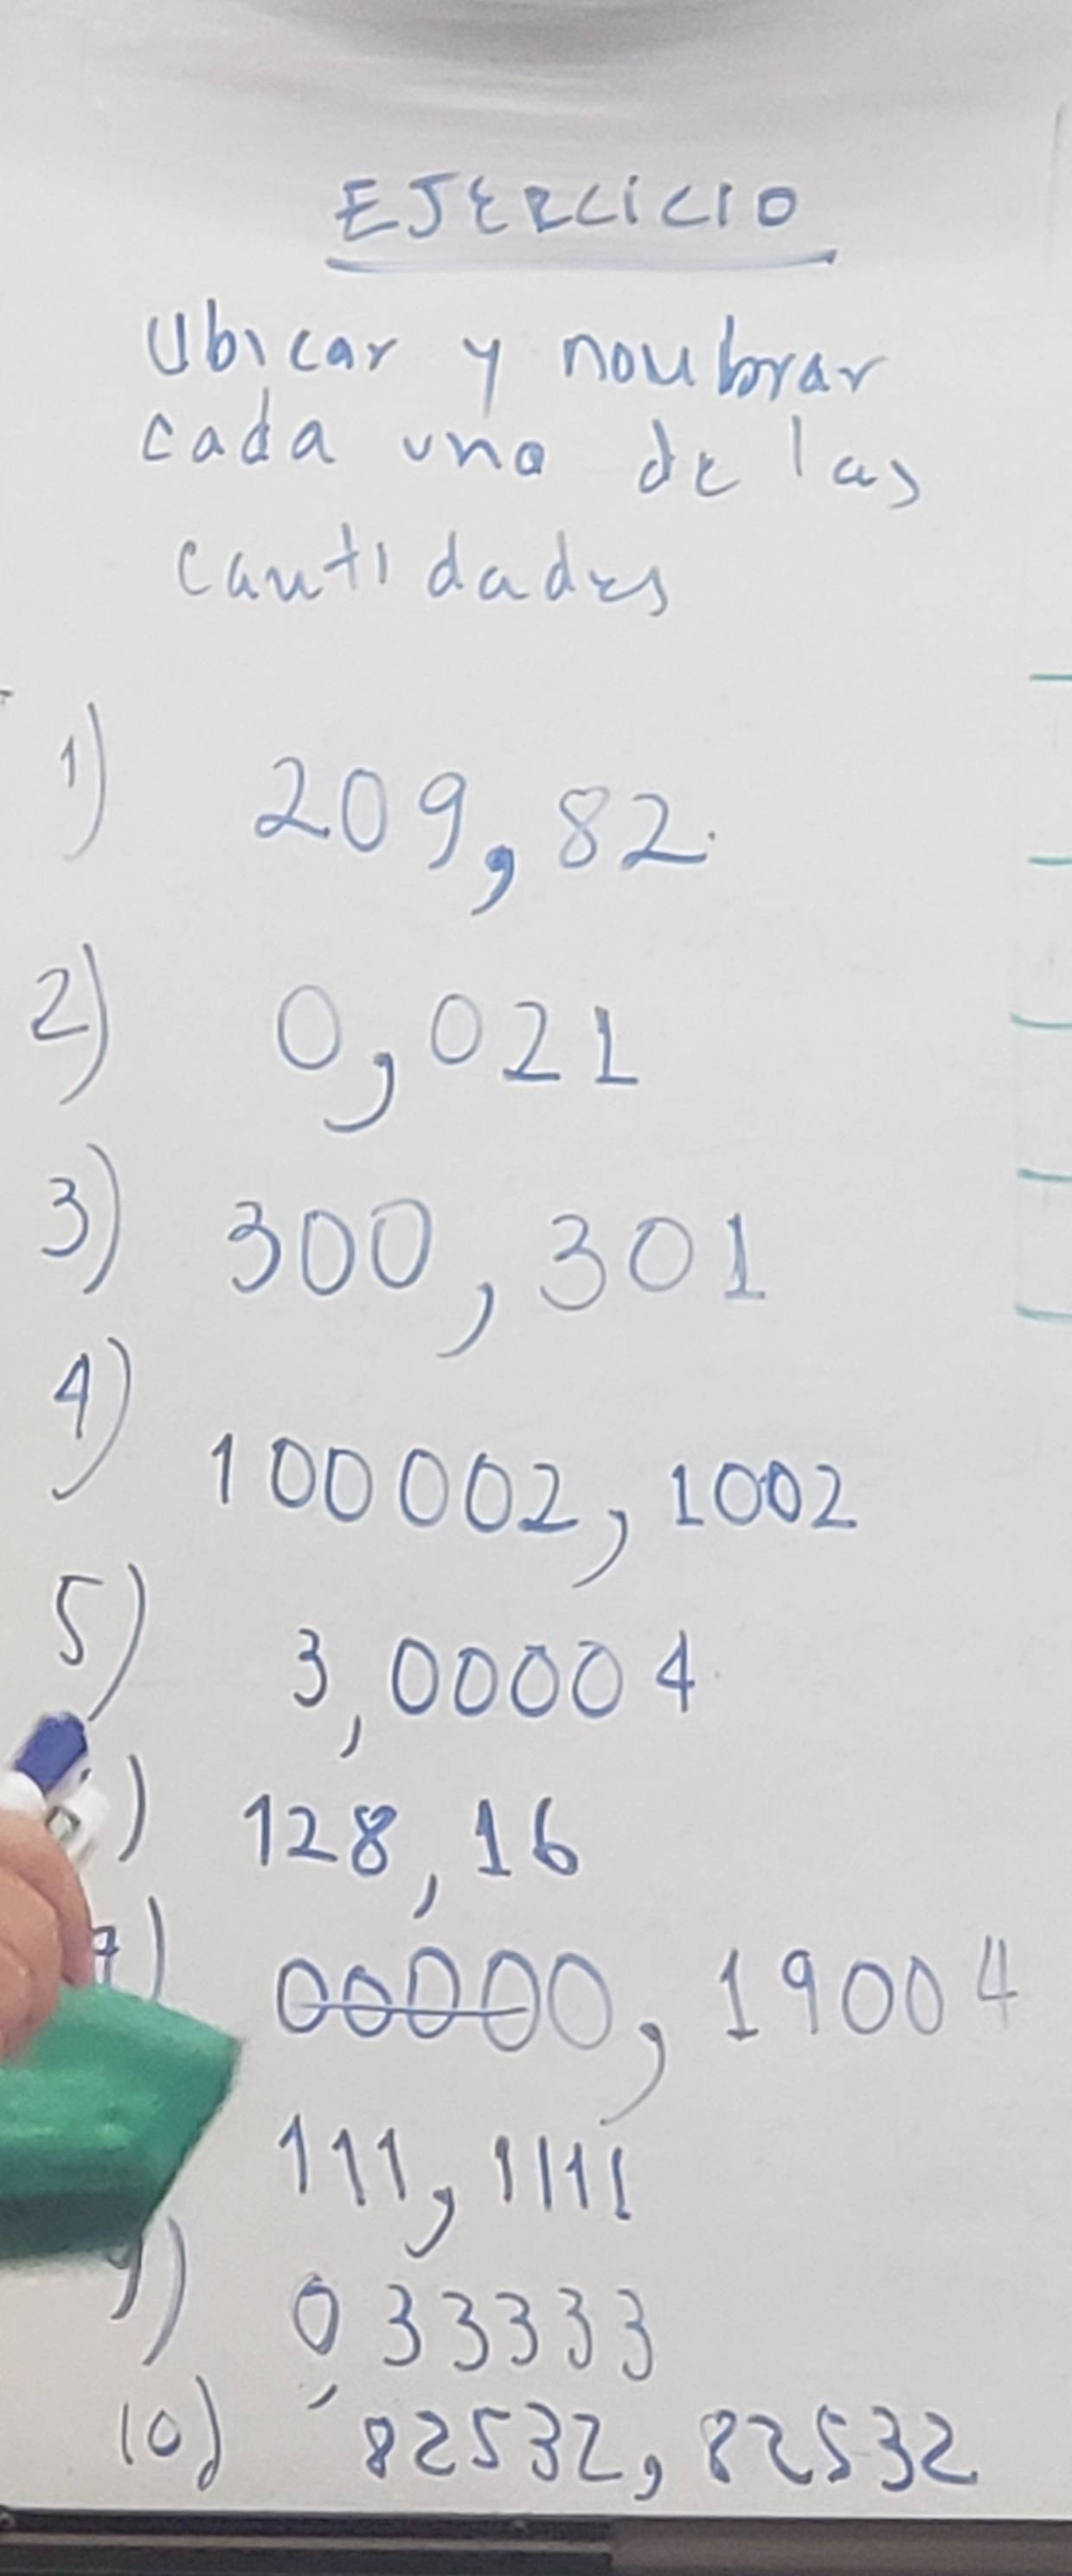 EJERCICIO
Ubicar y nombrar
cada una de las
cantidades
1) 209,82
2) 0,021
3) 300,301
4)
100002,1002
5) 3,00004
) 128,16
7) 00000,19004
111,1111
9) 0,33333
10) 82532,82532